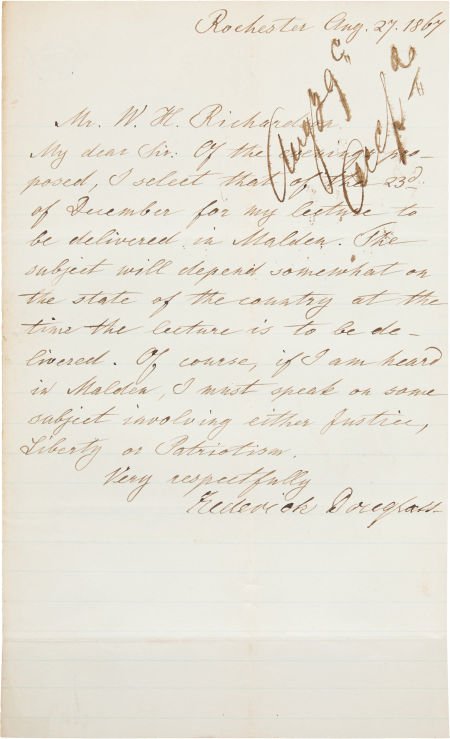 Rochester Aug. 27. 1867
Mr. W. H. Richardson.
My dear Sir: Of the evenings pro-
posed, I select that of the 23d
of December for my lecture to
be delivered in Malden. The
subject will depend somewhat on
the state of the country at the
time the lecture is to be de-
livered. Of course, if I am heard
in Malden, I must speak on some
subject involving either Justice,
Liberty or Patriotism.
Very respectfully
Frederick Douglass
Aug 29